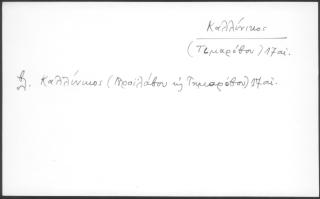 Καλλίνικος
(Τιμαρόβου) 17 αἰ.
βλ. Καλλίνικος (Προϊλάβου κ̀ Τιμαρόβου) 17 αἰ.